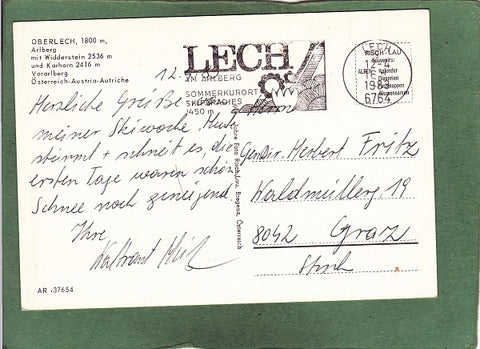 OBERLECH, 1800 m,
Arlberg
mit Widderstein 2536 m
und Karhorn 2416 m
Vorarlberg
Österreich-Austria-Autriche
LECH
AM ARLBERG
SOMMERKURORT
SKIPARADIES
1450 m
LECH
12.-4
6764
RISCH-LAU
12.
Herzliche Grüße von
meiner Skiwoche, Heute
stürmt + schneit es, die
ersten Tage waren schön
Schnee noch genügend
Ihre
Herrn
Herbert Fritz
Waldmüllerg. 19
8042 Graz
Foto Risch-Lau, Bregenz, Österreich
AR -37654